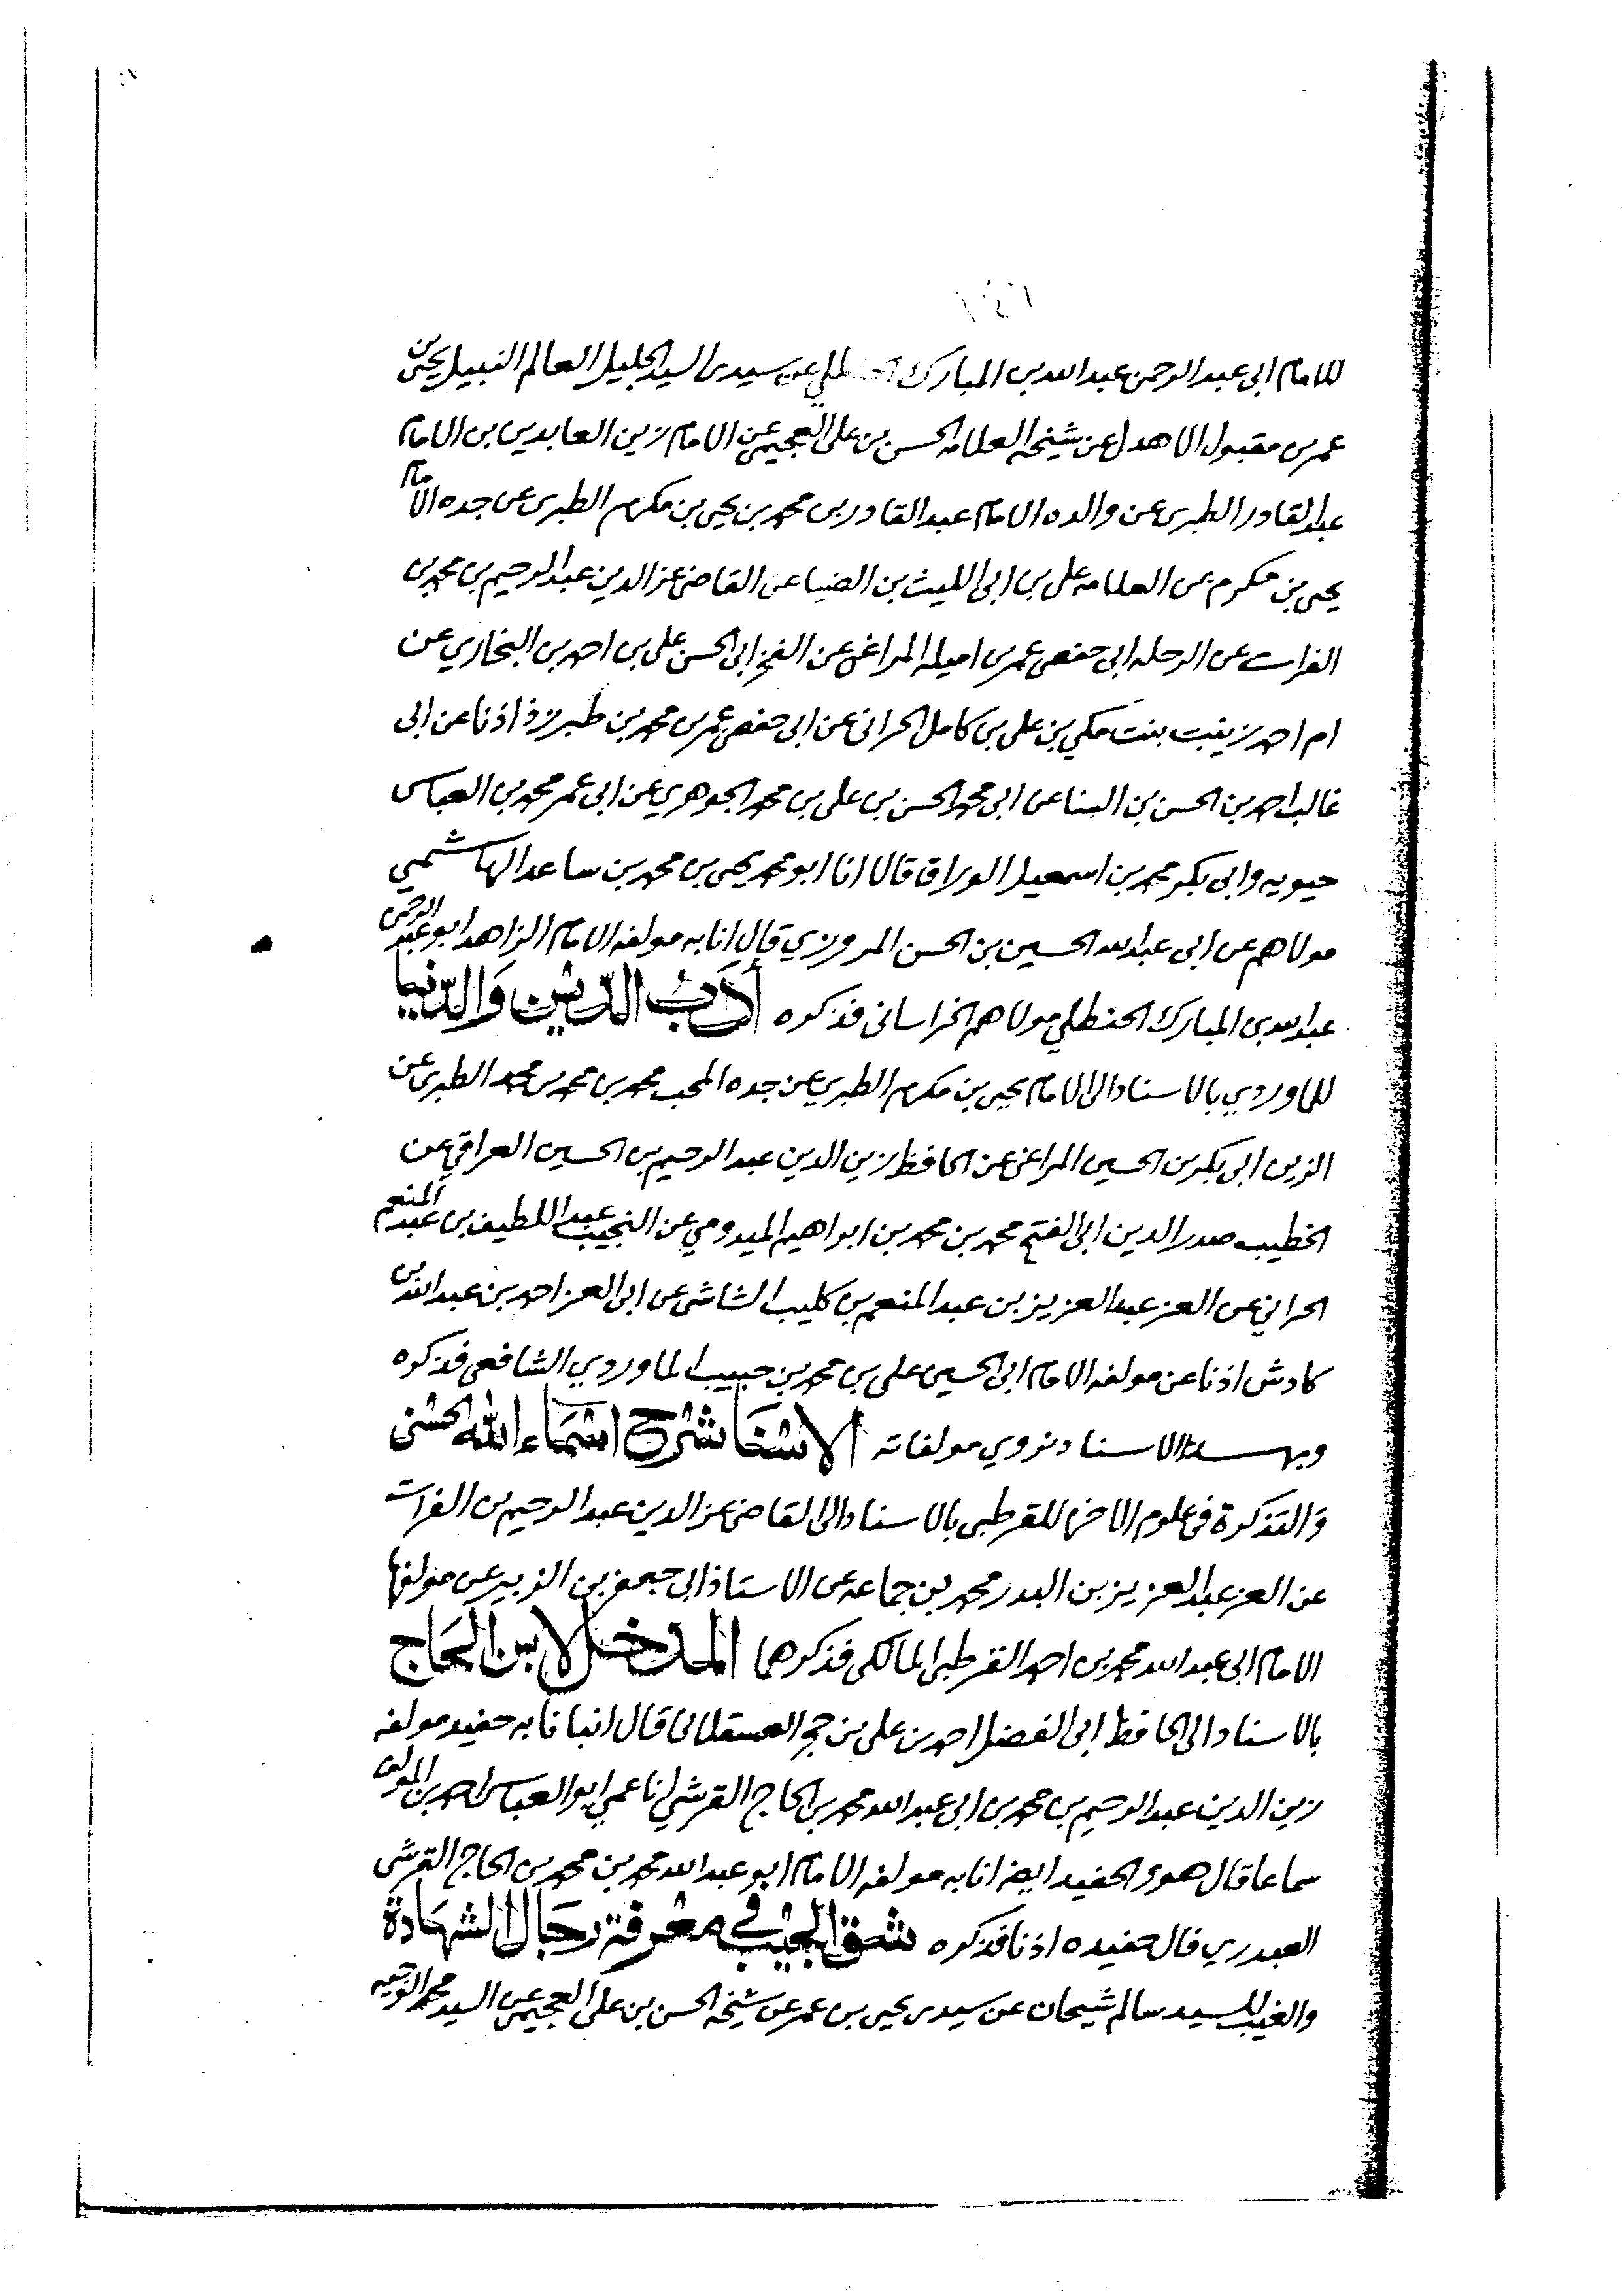 للامام ابى عبد الرحمن عبد الله بن المبارك عن سيدى السيد الجليل العالم النبيل يحيى بن
عمر بن مقبول الاهدل عن شيخه العلامه الحسن بن على العجيمى عن الامام زين العابدين بن الامام
عبد القادر الطبرى عن والده الامام عبد القادر بن محمد بن يحيى بن مكرم الطبرى عن جده الامام
يحيى بن مكرم عن العلامه على بن ابى الليث بن الضيا عن القاضى عز الدين عبد الرحيم بن محمد بن
الفرات عن الرحله ابى حفص عمر بن اميله المراغى عن الفخر ابى الحسن على بن احمد بن البخاري عن
ام احمد زينب بنت مكي بن على بن كامل الحرانى عن ابى حفص عمر بن محمد بن طبرزذ اذنا عن ابى
غالب احمد بن الحسن بن البنا عن ابى محمد الحسن بن على بن محمد الجوهري عن ابى عمر محمد بن العباس
حيويه وابى بكر محمد بن اسمعيل الوراق قالا انا ابو محمد يحيى بن محمد بن ساعد الهاشمي
مولاهم عن ابى عبد الله الحسين بن الحسن المروزي قال انا به مولفه الامام الزاهد ابو عبد الرحمن
عبد الله بن المبارك الحنظلي مولاهم الخراسانى فذكره أدب الدين والدنيا
للماوردي بالاسناد الى الامام يحيى بن مكرم الطبري عن جده المحب محمد بن محمد بن محمد الطبرى عن
الزين ابى بكر بن الحسين المراغى عن الحافظ زين الدين عبد الرحيم بن الحسين العراقي عن
الخطيب صدر الدين ابى الفتح محمد بن محمد بن ابراهيم الميدومي عن النجيب عبد اللطيف بن عبد المنعم
الحراني عن العز عبد العزيز بن عبد المنعم بن كليب الشاشى عن ابى العز احمد بن عبد الله بن
كادش اذنا عن مولفه الامام ابى الحسين على بن محمد بن حبيب الماوردي الشافعى فذكره
وبهذا الاسناد نروي مولفاته الاسنا شرح اسماء الله الحسنى
والتذكرة فى علوم الاخره للقرطبى بالاسناد الى القاضى عز الدين عبد الرحيم بن الفرات
عن العز عبد العزيز بن البدر محمد بن جماعه عن الاستاذ ابى جعفر بن الزبير عن مولفها
الامام ابى عبد الله محمد بن احمد القرطبى المالكى فذكرهما المدخل لابن الحاج
بالاسناد الى الحافظ ابى الفضل احمد بن على بن حجر العسقلانى قال انبانا به حفيد مولفه
زين الدين عبد الرحيم بن محمد بن ابى عبد الله محمد بن الحاج القرشي انا عمي ابو العباس احمد بن المولف
سماعا قال هو والحفيد ايضه انا به مولفه الامام ابو عبد الله محمد بن محمد بن الحاج القرشى
العبدري قال حفيده اذنا فذكره شق الجيب فى معرفة رجال الشهادة
والغيب للسيد سالم شيحان عن سيدى يحيى بن عمر عن شيخه الحسن بن على العجيمى عن السيد محمد